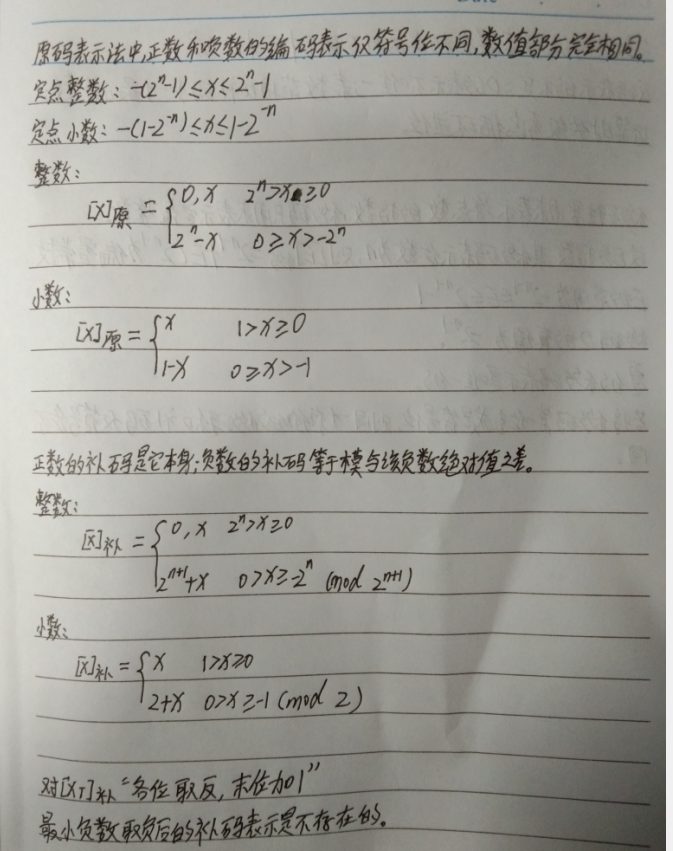 原码表示法中,正数和负数的编码表示仅符号位不同,数值部分完全相同。
定点整数: -(2ⁿ-1)≤x≤2ⁿ-1
定点小数: -(1-2⁻ⁿ)≤x≤1-2⁻ⁿ
整数:
[x]原 = { 0,x 2ⁿ>x≥0
2ⁿ-x 0≥x>-2ⁿ
小数:
[x]原 = { x 1>x≥0
1-x 0≥x>-1
正数的补码是它本身;负数的补码等于模与该负数绝对值之差。
整数:
[x]补 = { 0,x 2ⁿ>x≥0
2ⁿ⁺¹+x 0>x≥-2ⁿ (mod 2ⁿ⁺¹)
小数:
[x]补 = { x 1>x≥0
2+x 0>x≥-1 (mod 2)
对[xT]补“各位取反,末位加1”
最小负数取负后的补码表示是不存在的。